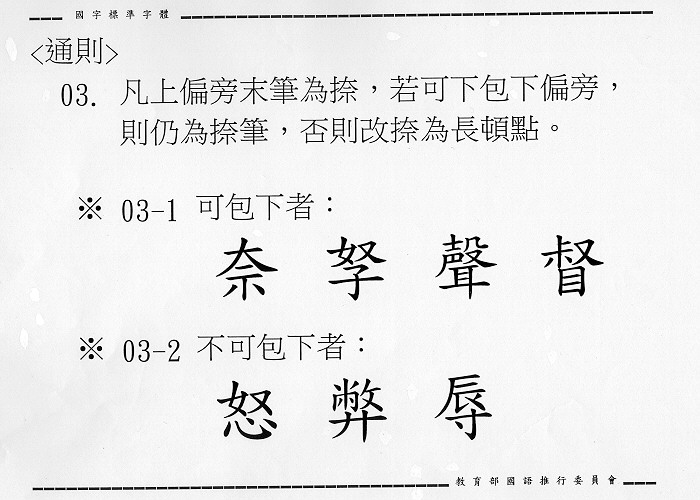 國字標準字體
<通則>
03. 凡上偏旁末筆為捺，若可下包下偏旁，
則仍為捺筆，否則改捺為長頓點。
※ 03-1 可包下者：
奈 孥 聲 督
※ 03-2 不可包下者：
怒 弊 辱
教育部國語推行委員會